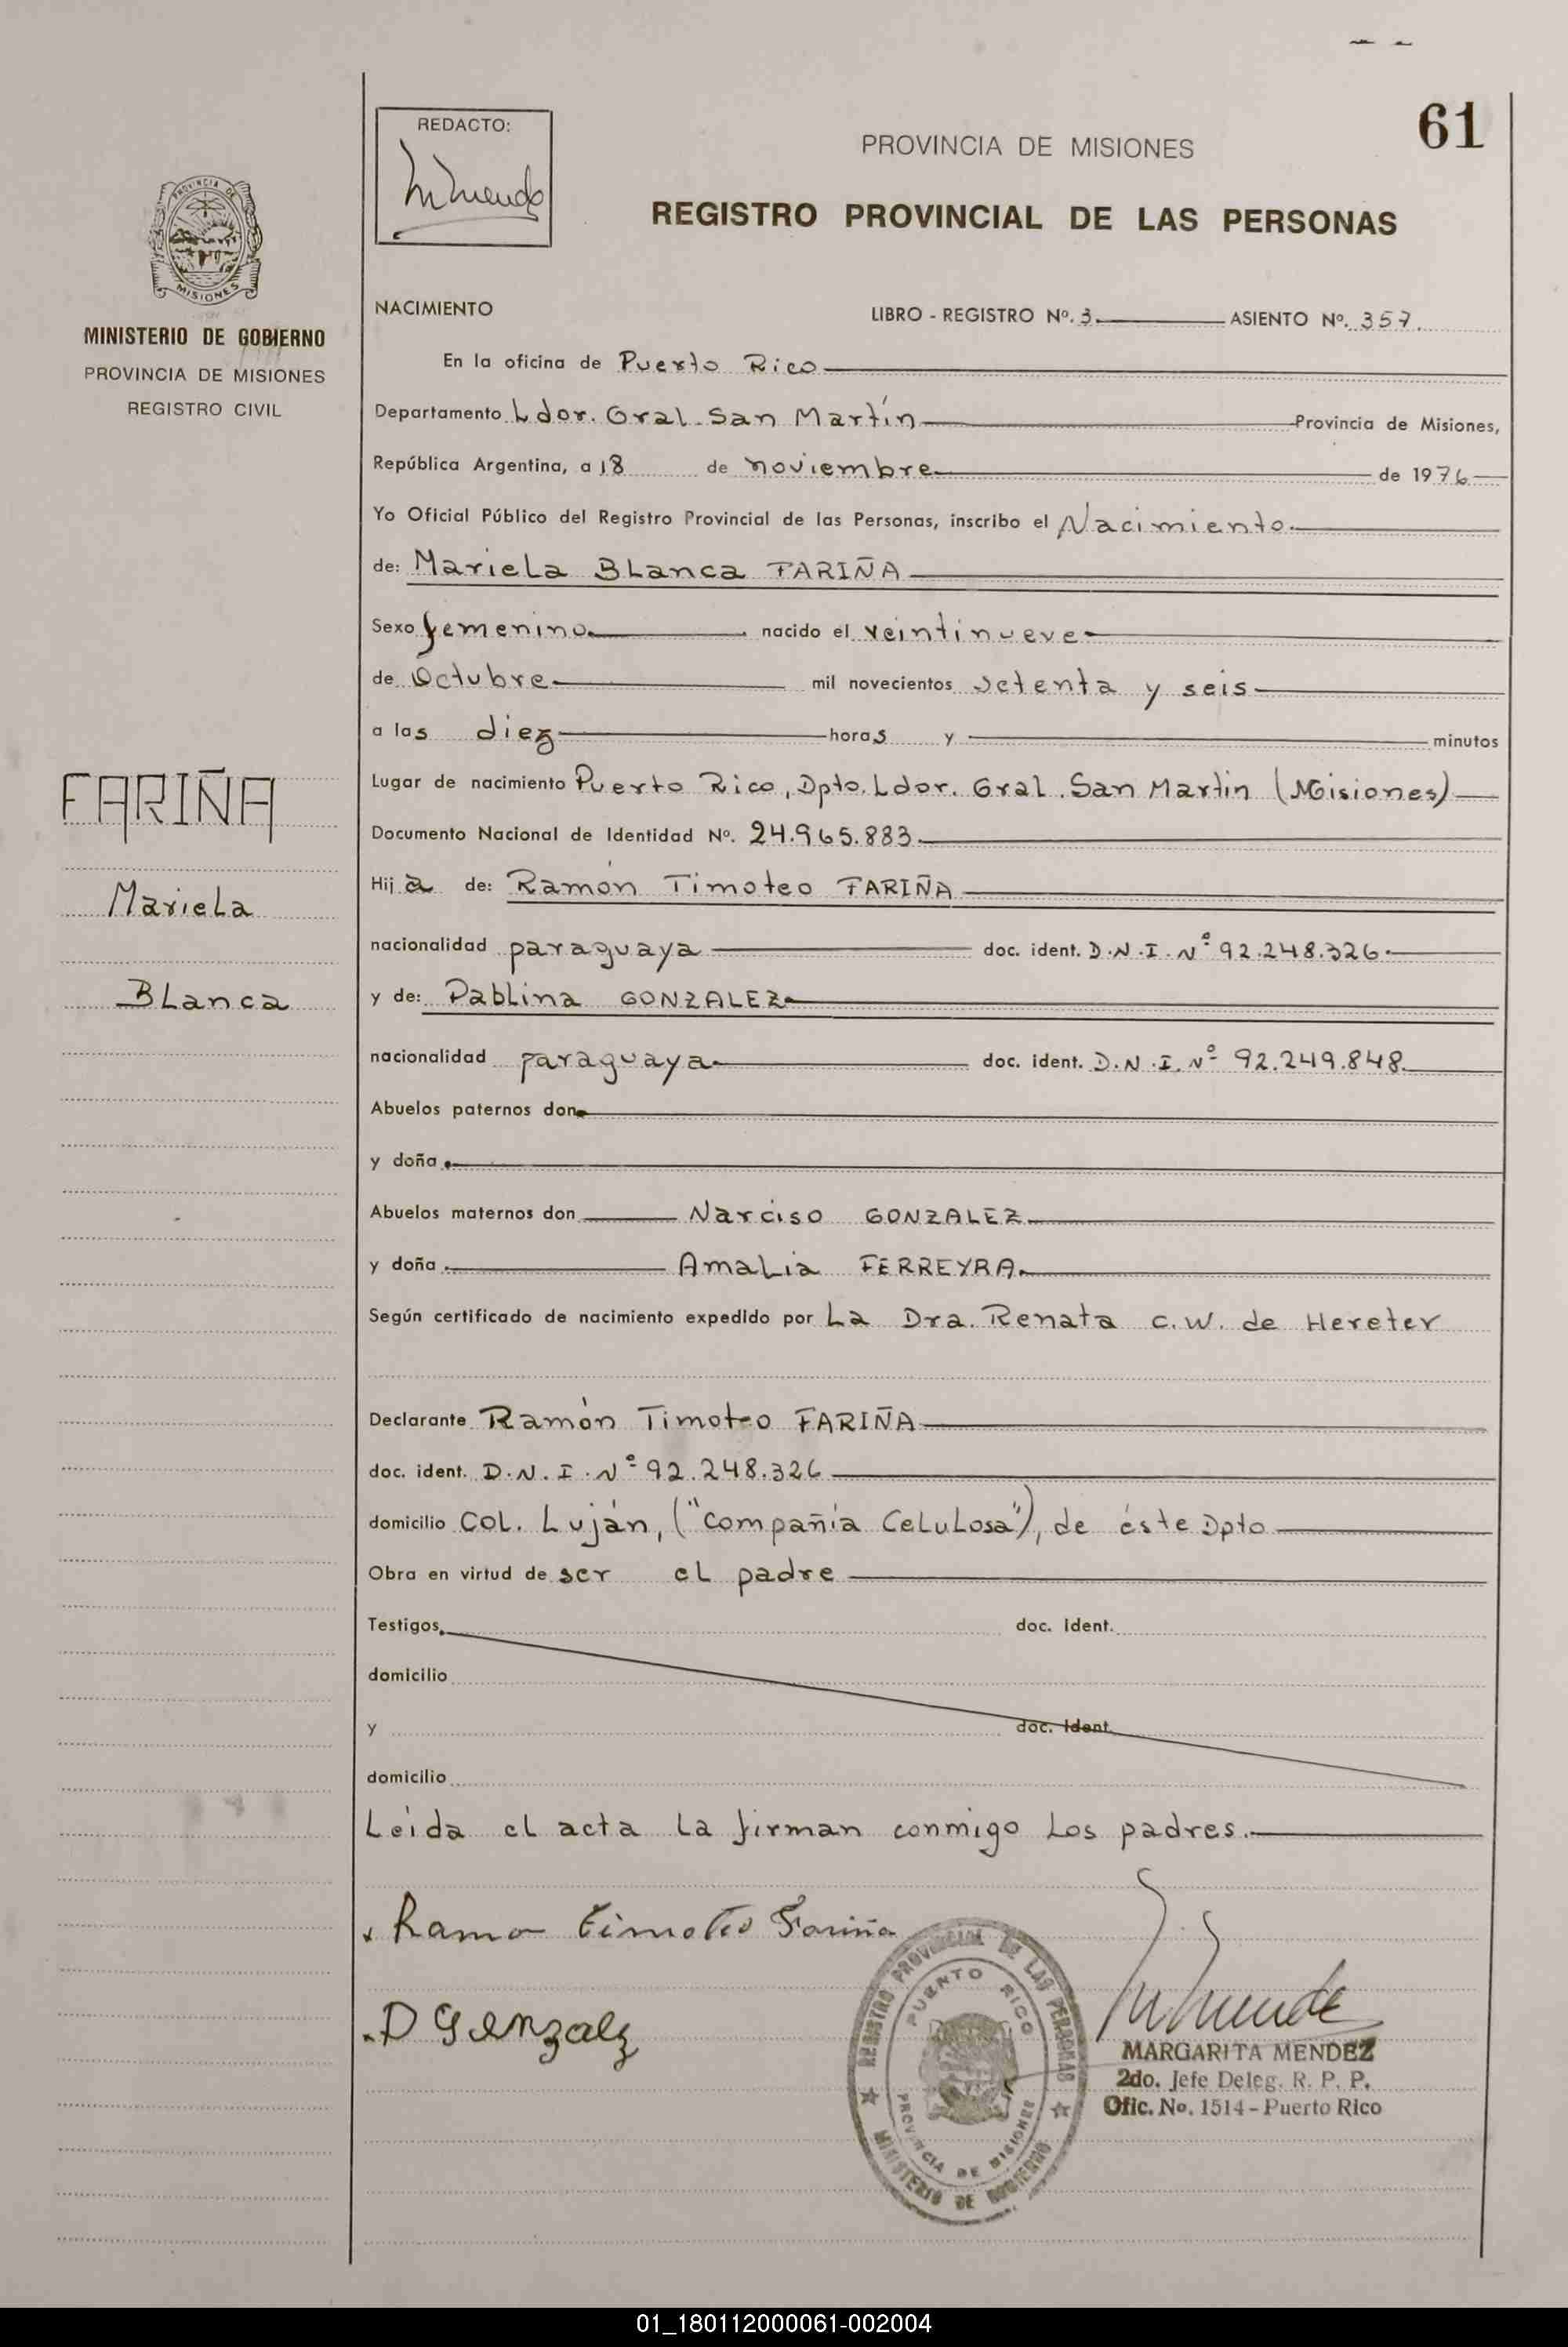 61
REDACTO:
PROVINCIA DE MISIONES
REGISTRO PROVINCIAL DE LAS PERSONAS
PROVINCIA DE
MISIONES
MINISTERIO DE GOBIERNO
PROVINCIA DE MISIONES
REGISTRO CIVIL
NACIMIENTO LIBRO - REGISTRO Nº. 3 ASIENTO Nº. 357.
En la oficina de Puerto Rico
Departamento Ldor. Gral. San Martín Provincia de Misiones,
República Argentina, a 18 de noviembre de 1976
Yo Oficial Público del Registro Provincial de las Personas, inscribo el Nacimiento.
de: Mariela Blanca FARIÑA
Sexo femenino nacido el veintinueve
de Octubre mil novecientos setenta y seis
a las diez horas y minutos
Lugar de nacimiento Puerto Rico, Dpto. Ldor. Gral. San Martin (Misiones)
Documento Nacional de Identidad Nº. 24.965.883.
Hij a de: Ramón Timoteo FARIÑA
nacionalidad paraguaya doc. ident. D.N.I. Nº 92.248.326.
y de: Pablina GONZALEZ
nacionalidad paraguaya doc. ident. D.N.I. Nº 92.249.848.
Abuelos paternos don
y doña
Abuelos maternos don Narciso GONZALEZ
y doña Amalia FERREYRA.
Según certificado de nacimiento expedido por La Dra. Renata C.W. de Hereter
Declarante Ramón Timoteo FARIÑA
doc. ident. D.N.I. Nº 92.248.326
domicilio Col. Luján, ("Compañía Celulosa"), de éste Dpto
Obra en virtud de ser el padre
Testigos doc. ident.
domicilio
y doc. ident.
domicilio
Leída el acta la firman conmigo los padres.
FARIÑA
Mariela
Blanca
Ramo Timoteo Fariña
P Genzalz
REGISTRO PROVINCIAL DE LAS PERSONAS
PUERTO RICO
PROVINCIA DE MISIONES
MINISTERIO DE GOBIERNO
MARGARITA MENDEZ
2do. Jefe Deleg. R. P. P.
Ofic. No. 1514 - Puerto Rico
01_180112000061-002004